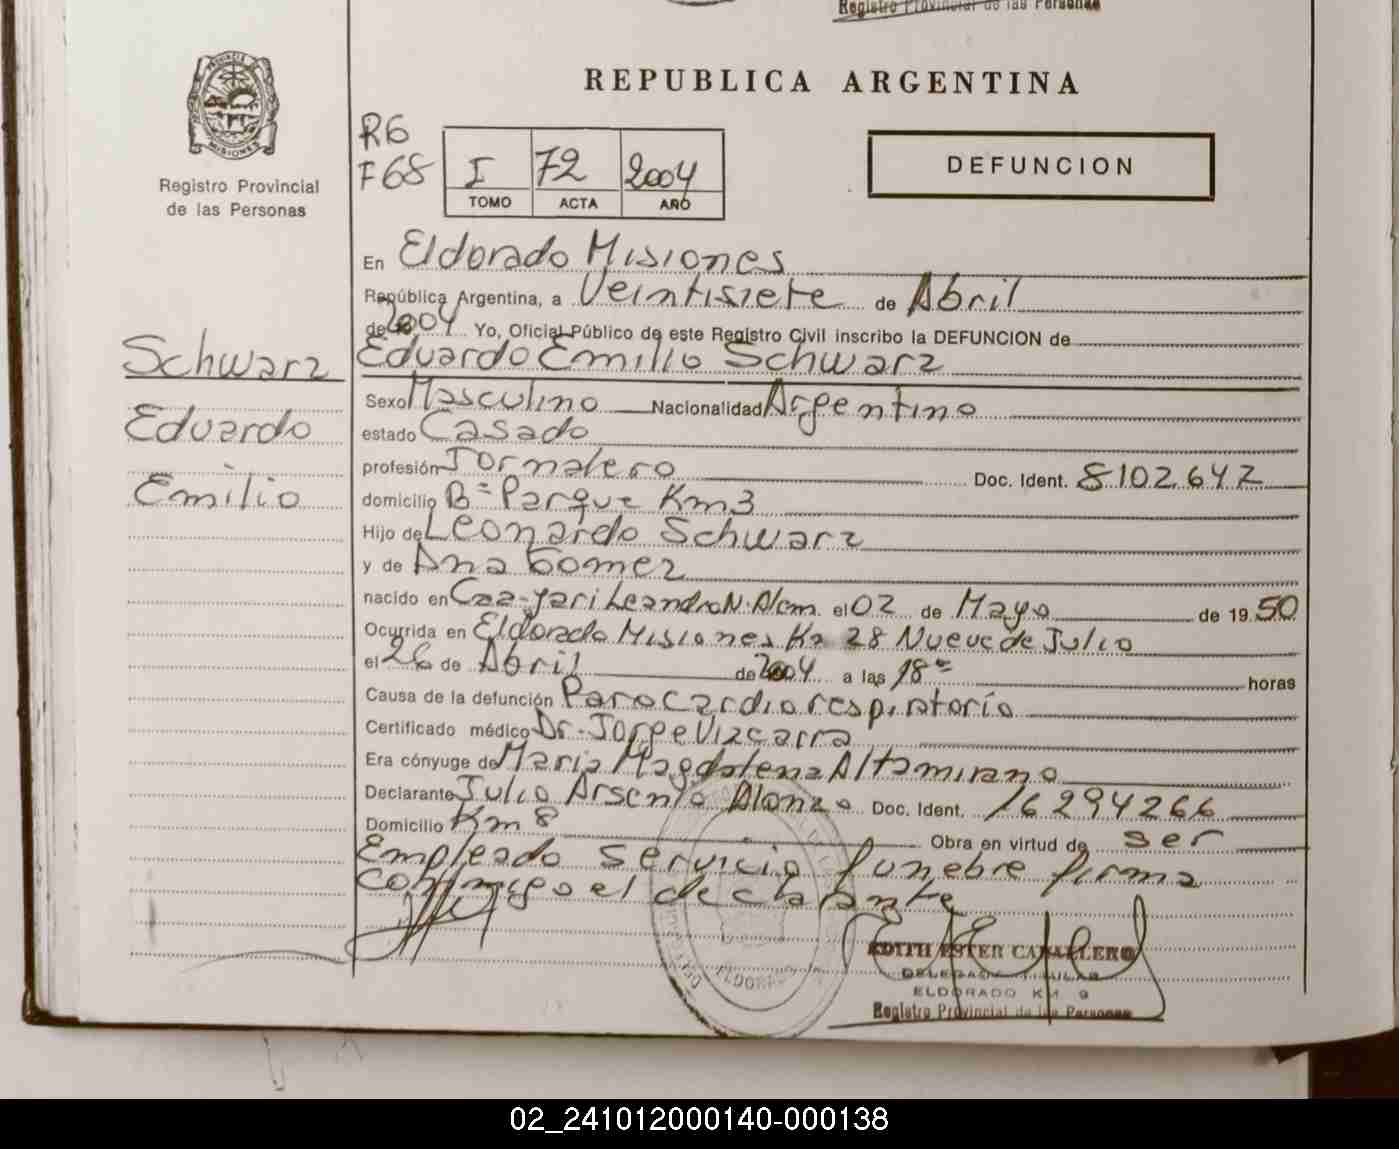 Registro Provincial de las Personas
PROVINCIA DE MISIONES
Registro Provincial
de las Personas
REPUBLICA ARGENTINA
R6
F68
I 72 2004
TOMO ACTA AÑO
DEFUNCION
En Eldorado Misiones
República Argentina, a Veintisiete de Abril
de 2004 Yo, Oficial Público de este Registro Civil inscribo la DEFUNCION de
Schwarz
Eduardo
Emilio
Eduardo Emilio Schwarz
Sexo Masculino Nacionalidad Argentino
estado Casado
profesión Jornalero Doc. Ident. 8102.647
domicilio Bº Parque Km3
Hijo de Leonardo Schwarz
y de Ana Gomez
nacido en Caa-Yari Leandro N. Alem. el 02 de Mayo de 1950
Ocurrida en Eldorado Misiones Km 28 Nueve de Julio
el 26 de Abril de 2004 a las 18 horas
Causa de la defunción Paro Cardiorespiratorio
Certificado médico Dr. Jorge Vizcarra
Era cónyuge de Maria Magdalena Altamirano
Declarante Julio Arsenio Alonzo Doc. Ident. 16294266
Domicilio Km 8 Obra en virtud de ser
Empleado servicio funebre firma
conmigo el declarante
EDITH ESTER CABALLERO
DELEGADA TITULAR
ELDORADO KM 9
Registro Provincial de las Personas
02_241012000140-000138